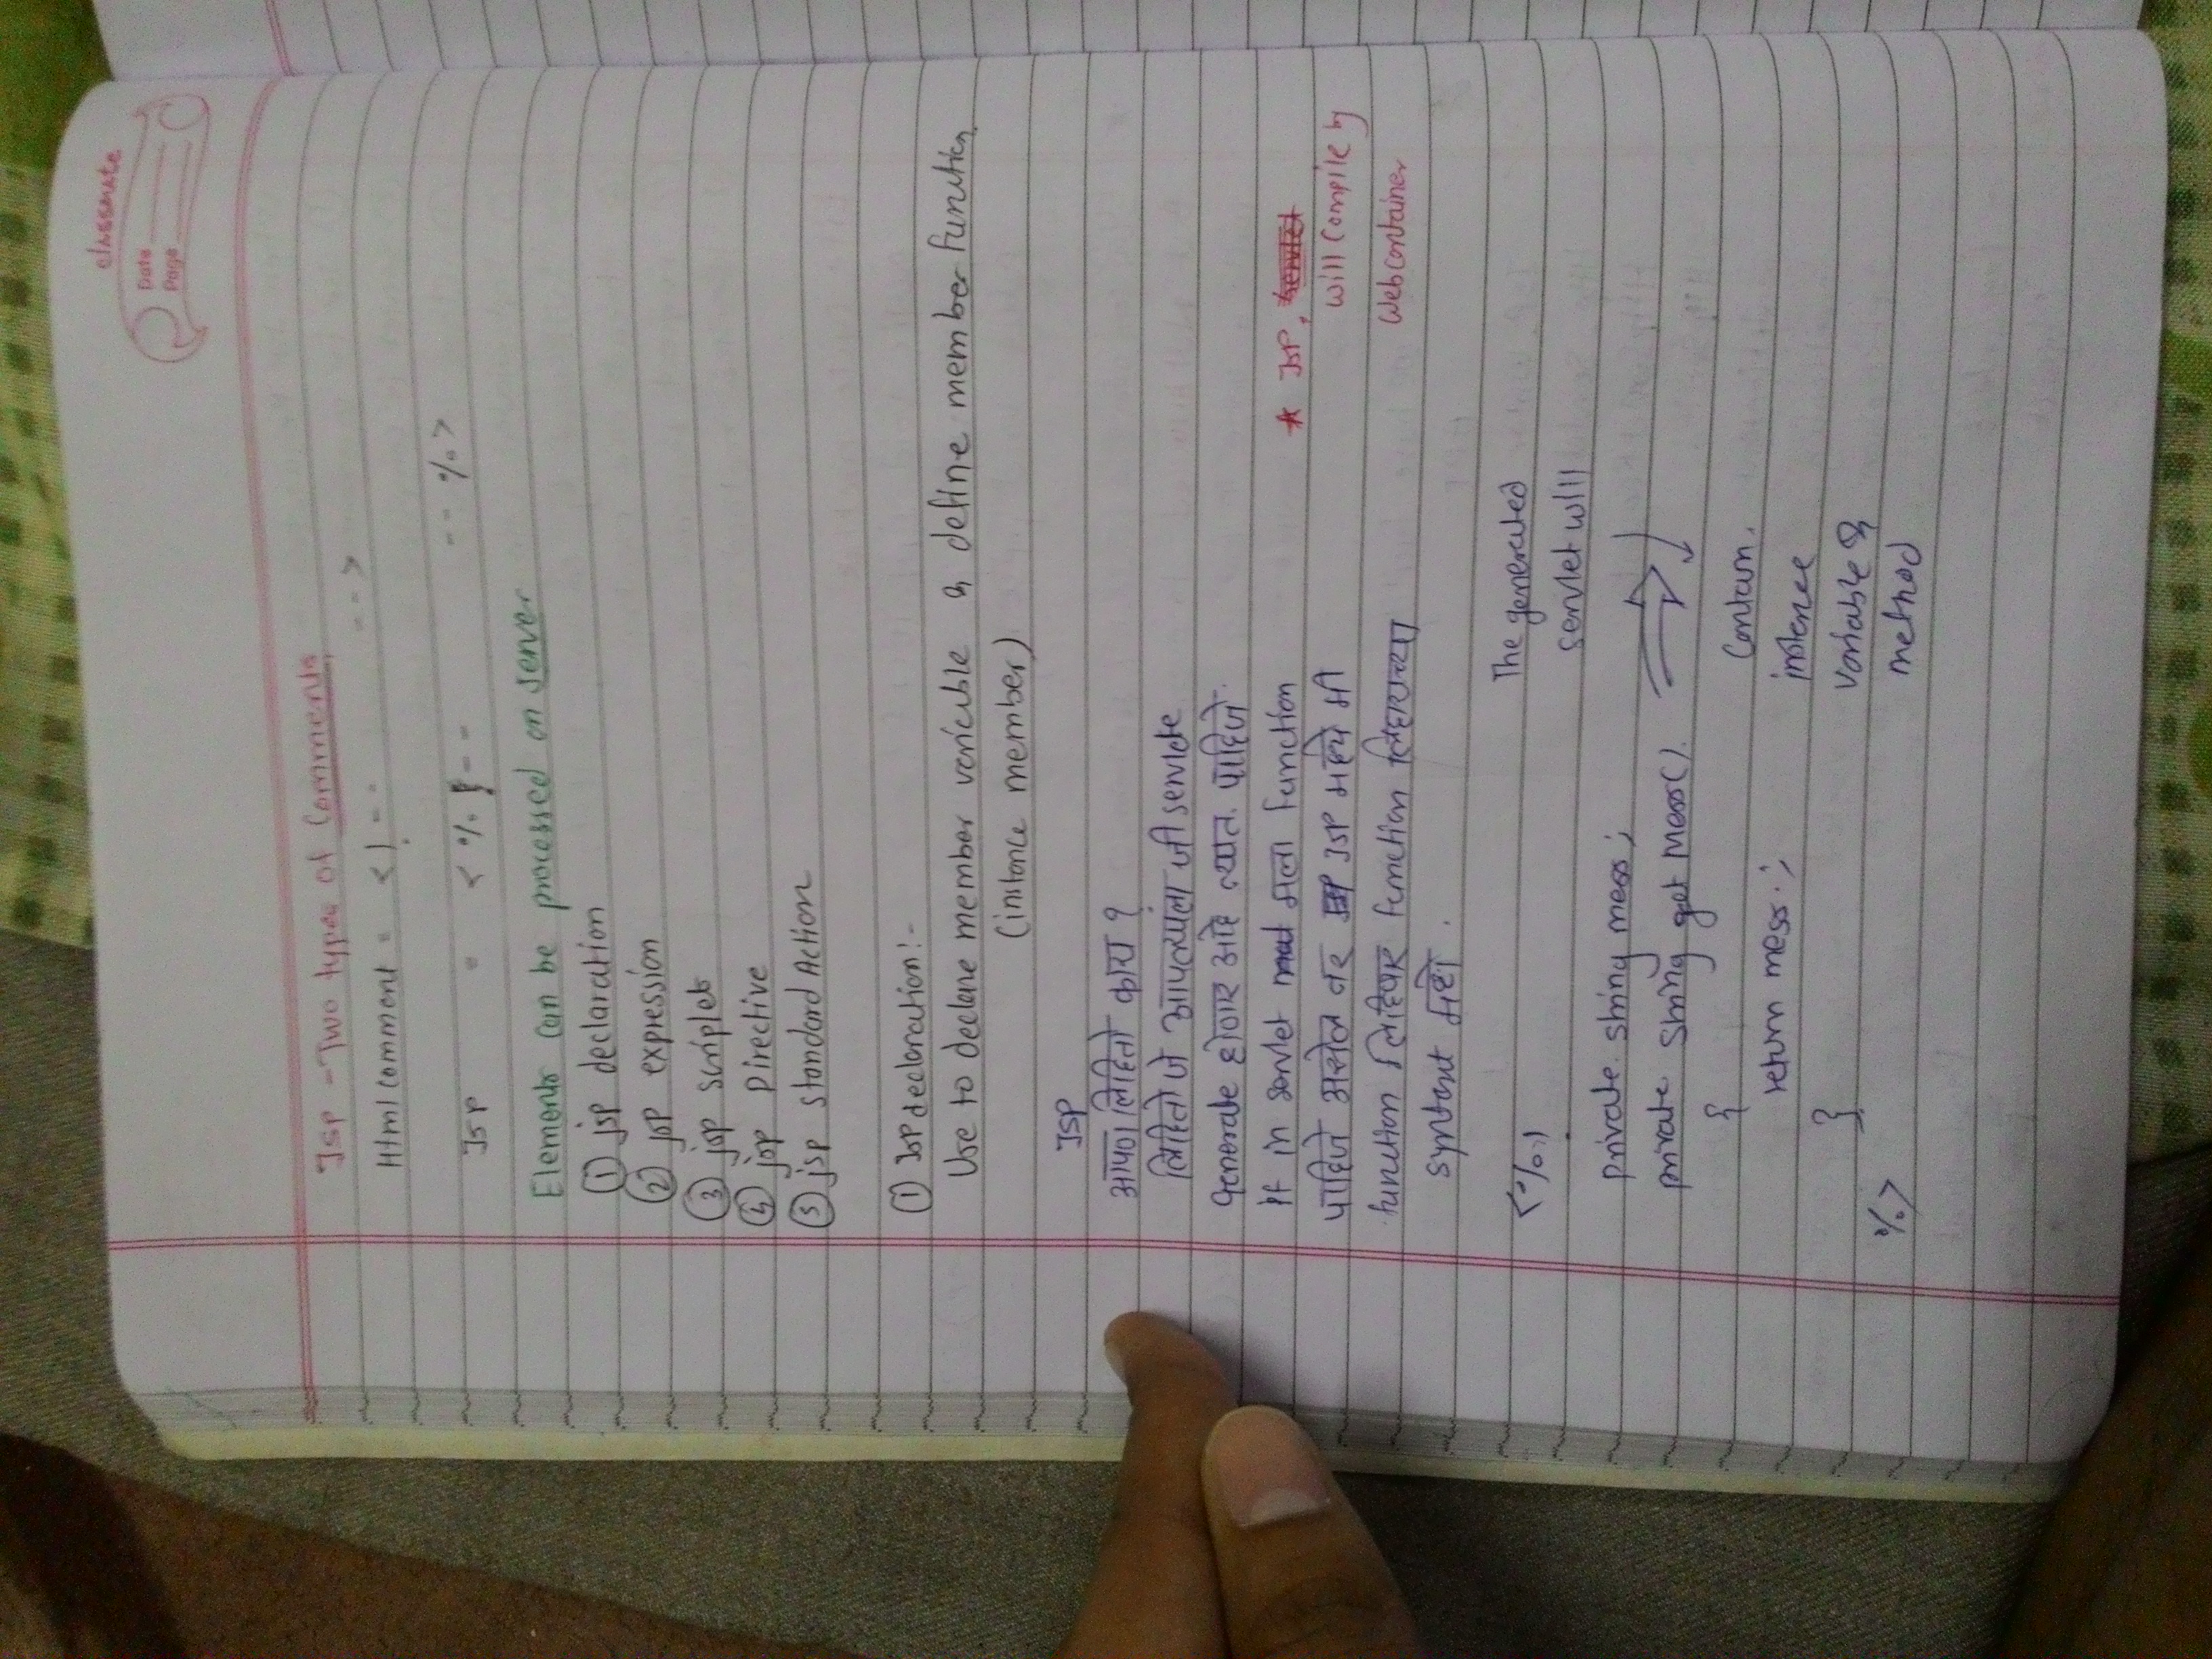 classmate
Date
Page
JSP - Two types of Comments
Html comment = <!-- -->
JSP = <%-- --%>
Elements can be processed on server
① jsp declaration
② jsp expression
③ jsp scriplet
④ jsp Directive
⑤ jsp standard Action
① JSP declaration:-
Use to declare member variable & define member function
(instance member)
JSP
आपण लिहितो काय ?
लिहितो जे आपल्याला जी servlete
generate होणार आहे त्यात. पाहिजे
if in servlet मला function
पाहिजे असेल तर JSP मध्ये मी
function लिहिणार function लिहायच्या
syntax मध्ये .
* JSP,
will compile by
Webcontainer
<%!
private string mess;
private string get Mess().
{
return mess.;
}
%>
The generated
servlet will
Contain.
instence
variable &
method